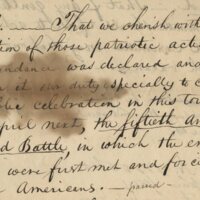 That we cherish with
tion of those patriotic act
ndence was declared and
it our duty especially to c
lic celebration in this tow
pril next, the fiftieth An
d Battle, in which the en
were first met and forced
Americans. — passed —